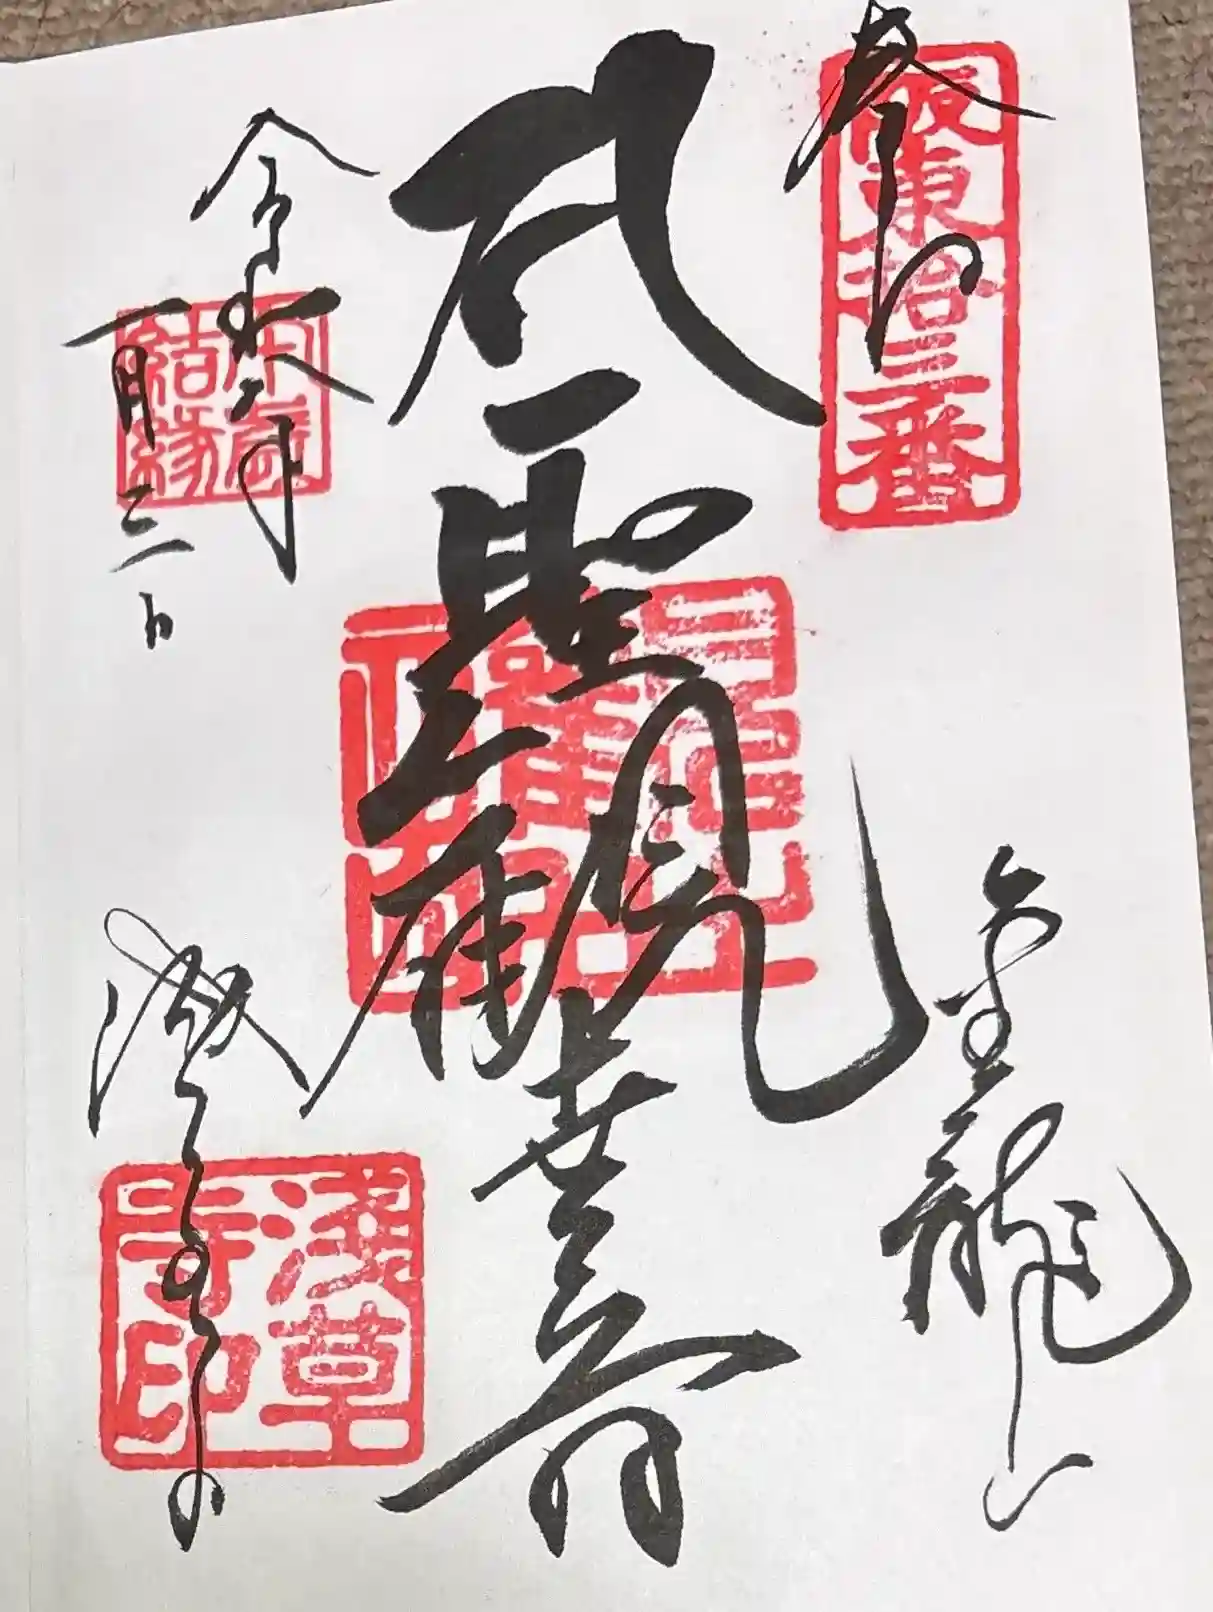 奉拝
坂東拾三番
金龍山
聖観世音
令和六年
一月二日
千歳
結縁
浅草寺
淺草
寺印